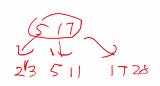 5 17
23 5 11 17 28